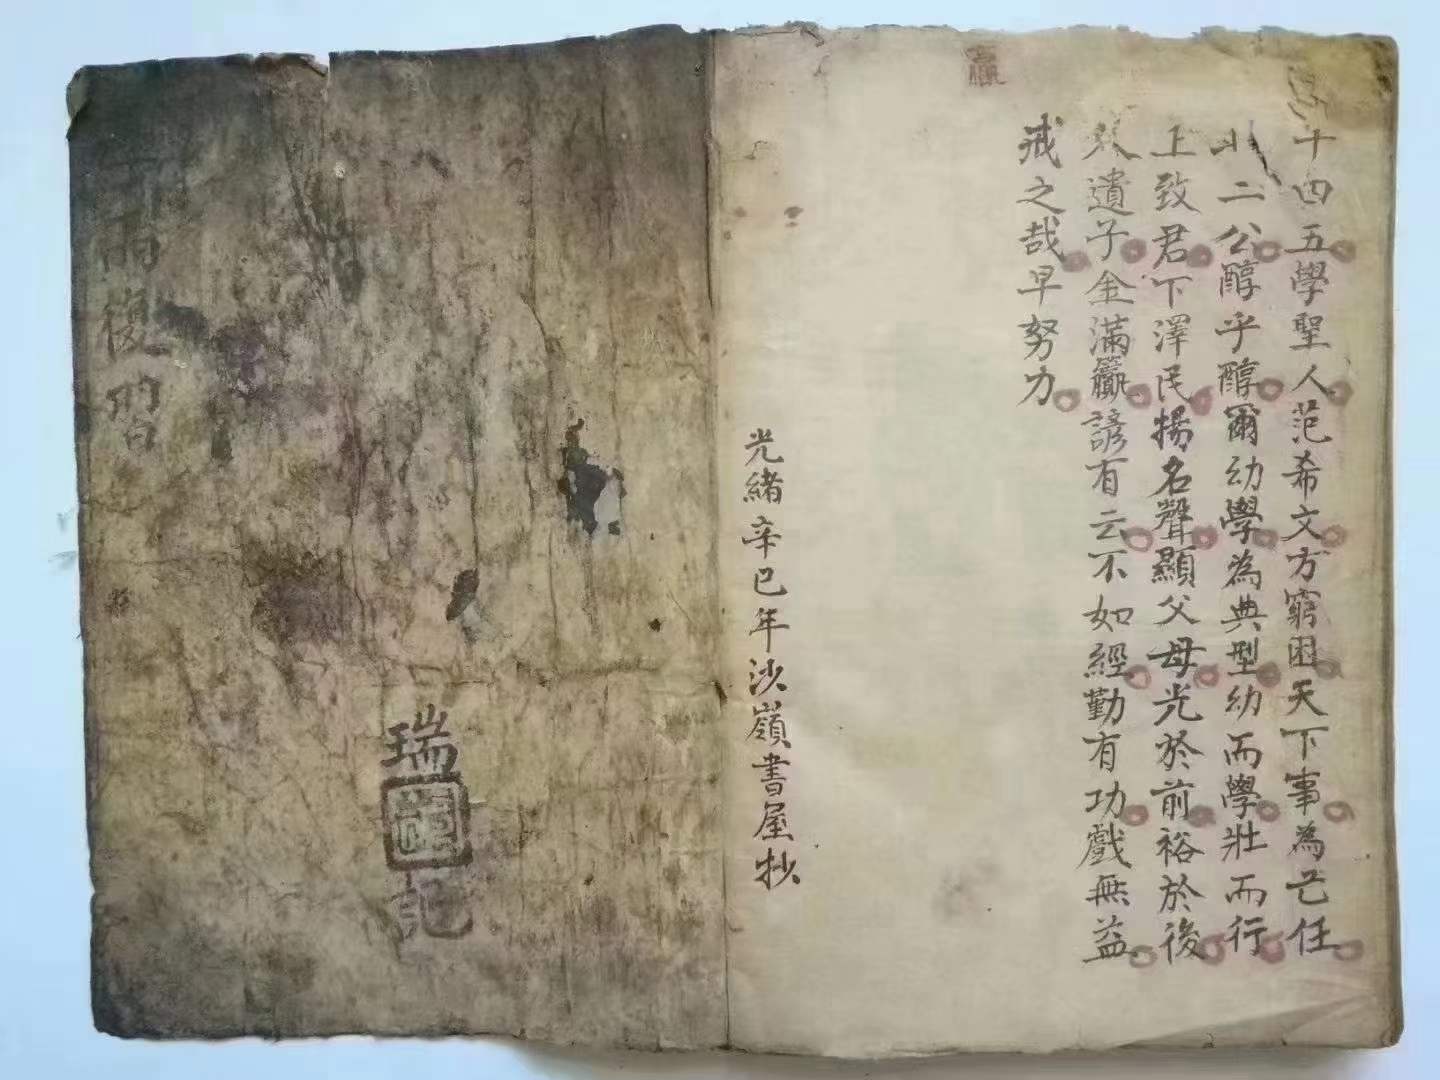 十四五學聖人范希文方窮困天下事為己任
此二公醇乎醇爾幼學為典型幼而學壯而行
上致君下澤民揚名聲顯父母光於前裕於後
人遺子金滿籯諺有云不如經勤有功戲無益
戒之哉早努力
光緒辛巳年沙嶺書屋抄
而復習
瑞
記